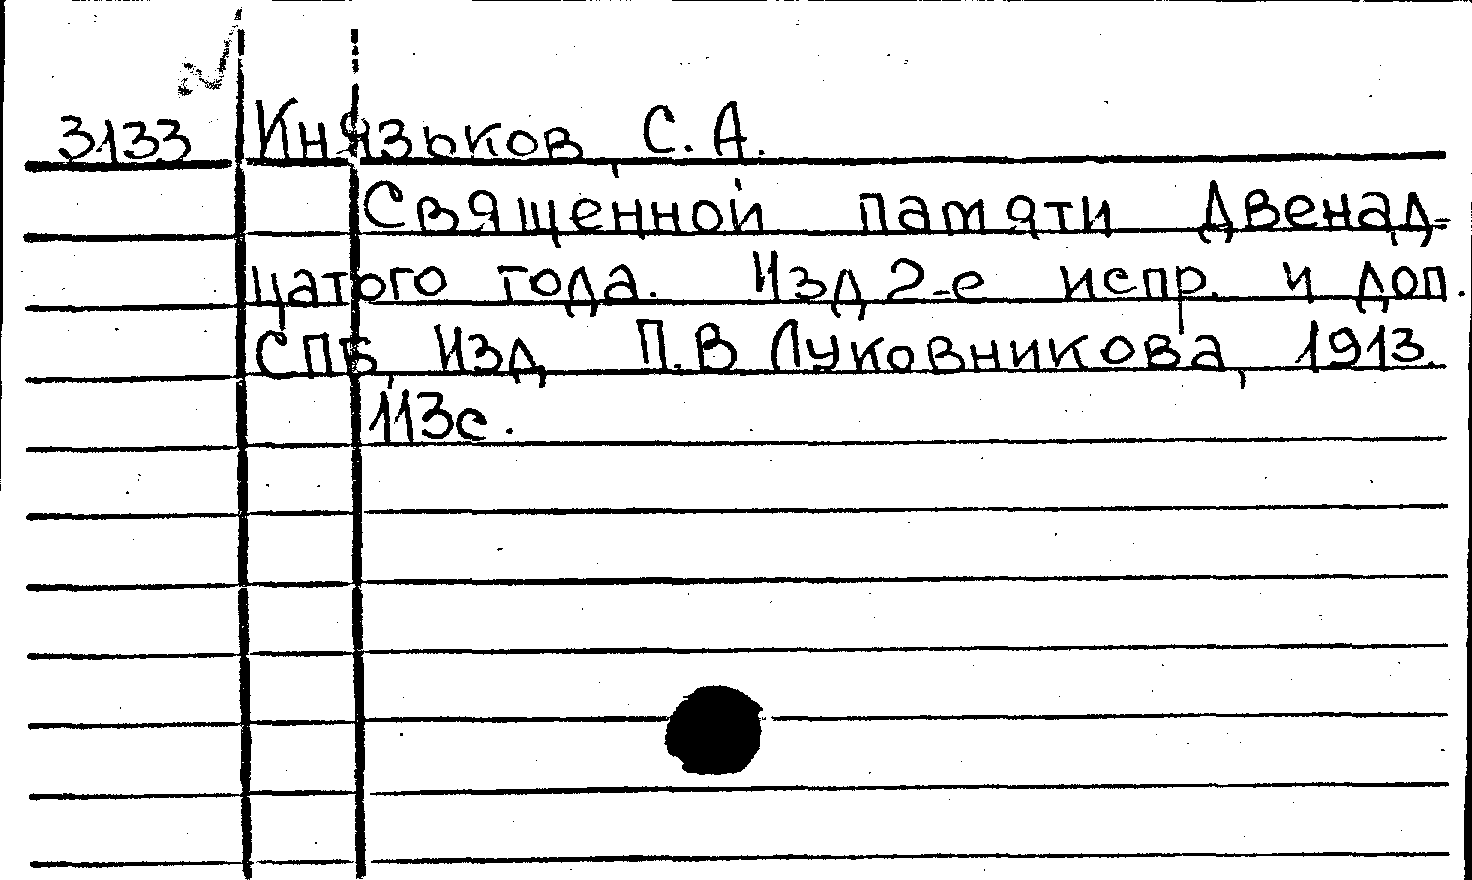 3133 Князьков, С. А.
Священной памяти Двенад-
цатого года. Изд 2-е испр. и доп.
СПБ, Изд П.В Луковникова, 1913.
113с.